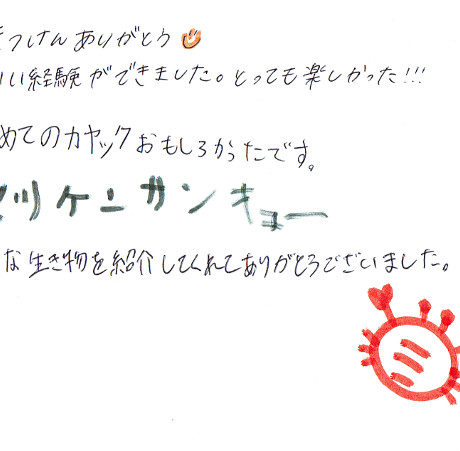 つけんありがとう
いい経験ができました。とっても楽しかった!!!
めてのカヤックおもしろかったです。
ツケンカンキョー
な生き物を紹介してくれてありがとうございました。